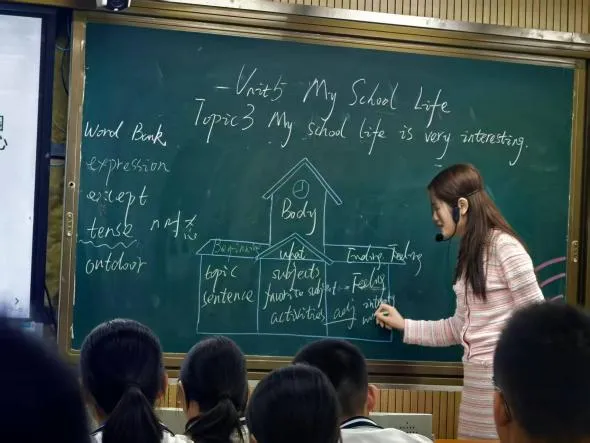 Unit 5 My School Life
Topic 3 My school life is very interesting.
Word Bank
expression
except
tense
outdoor
Body
Beginning
topic
sentence
what
subjects
favorite subject
activities
Ending Feeling
Feeling
adj